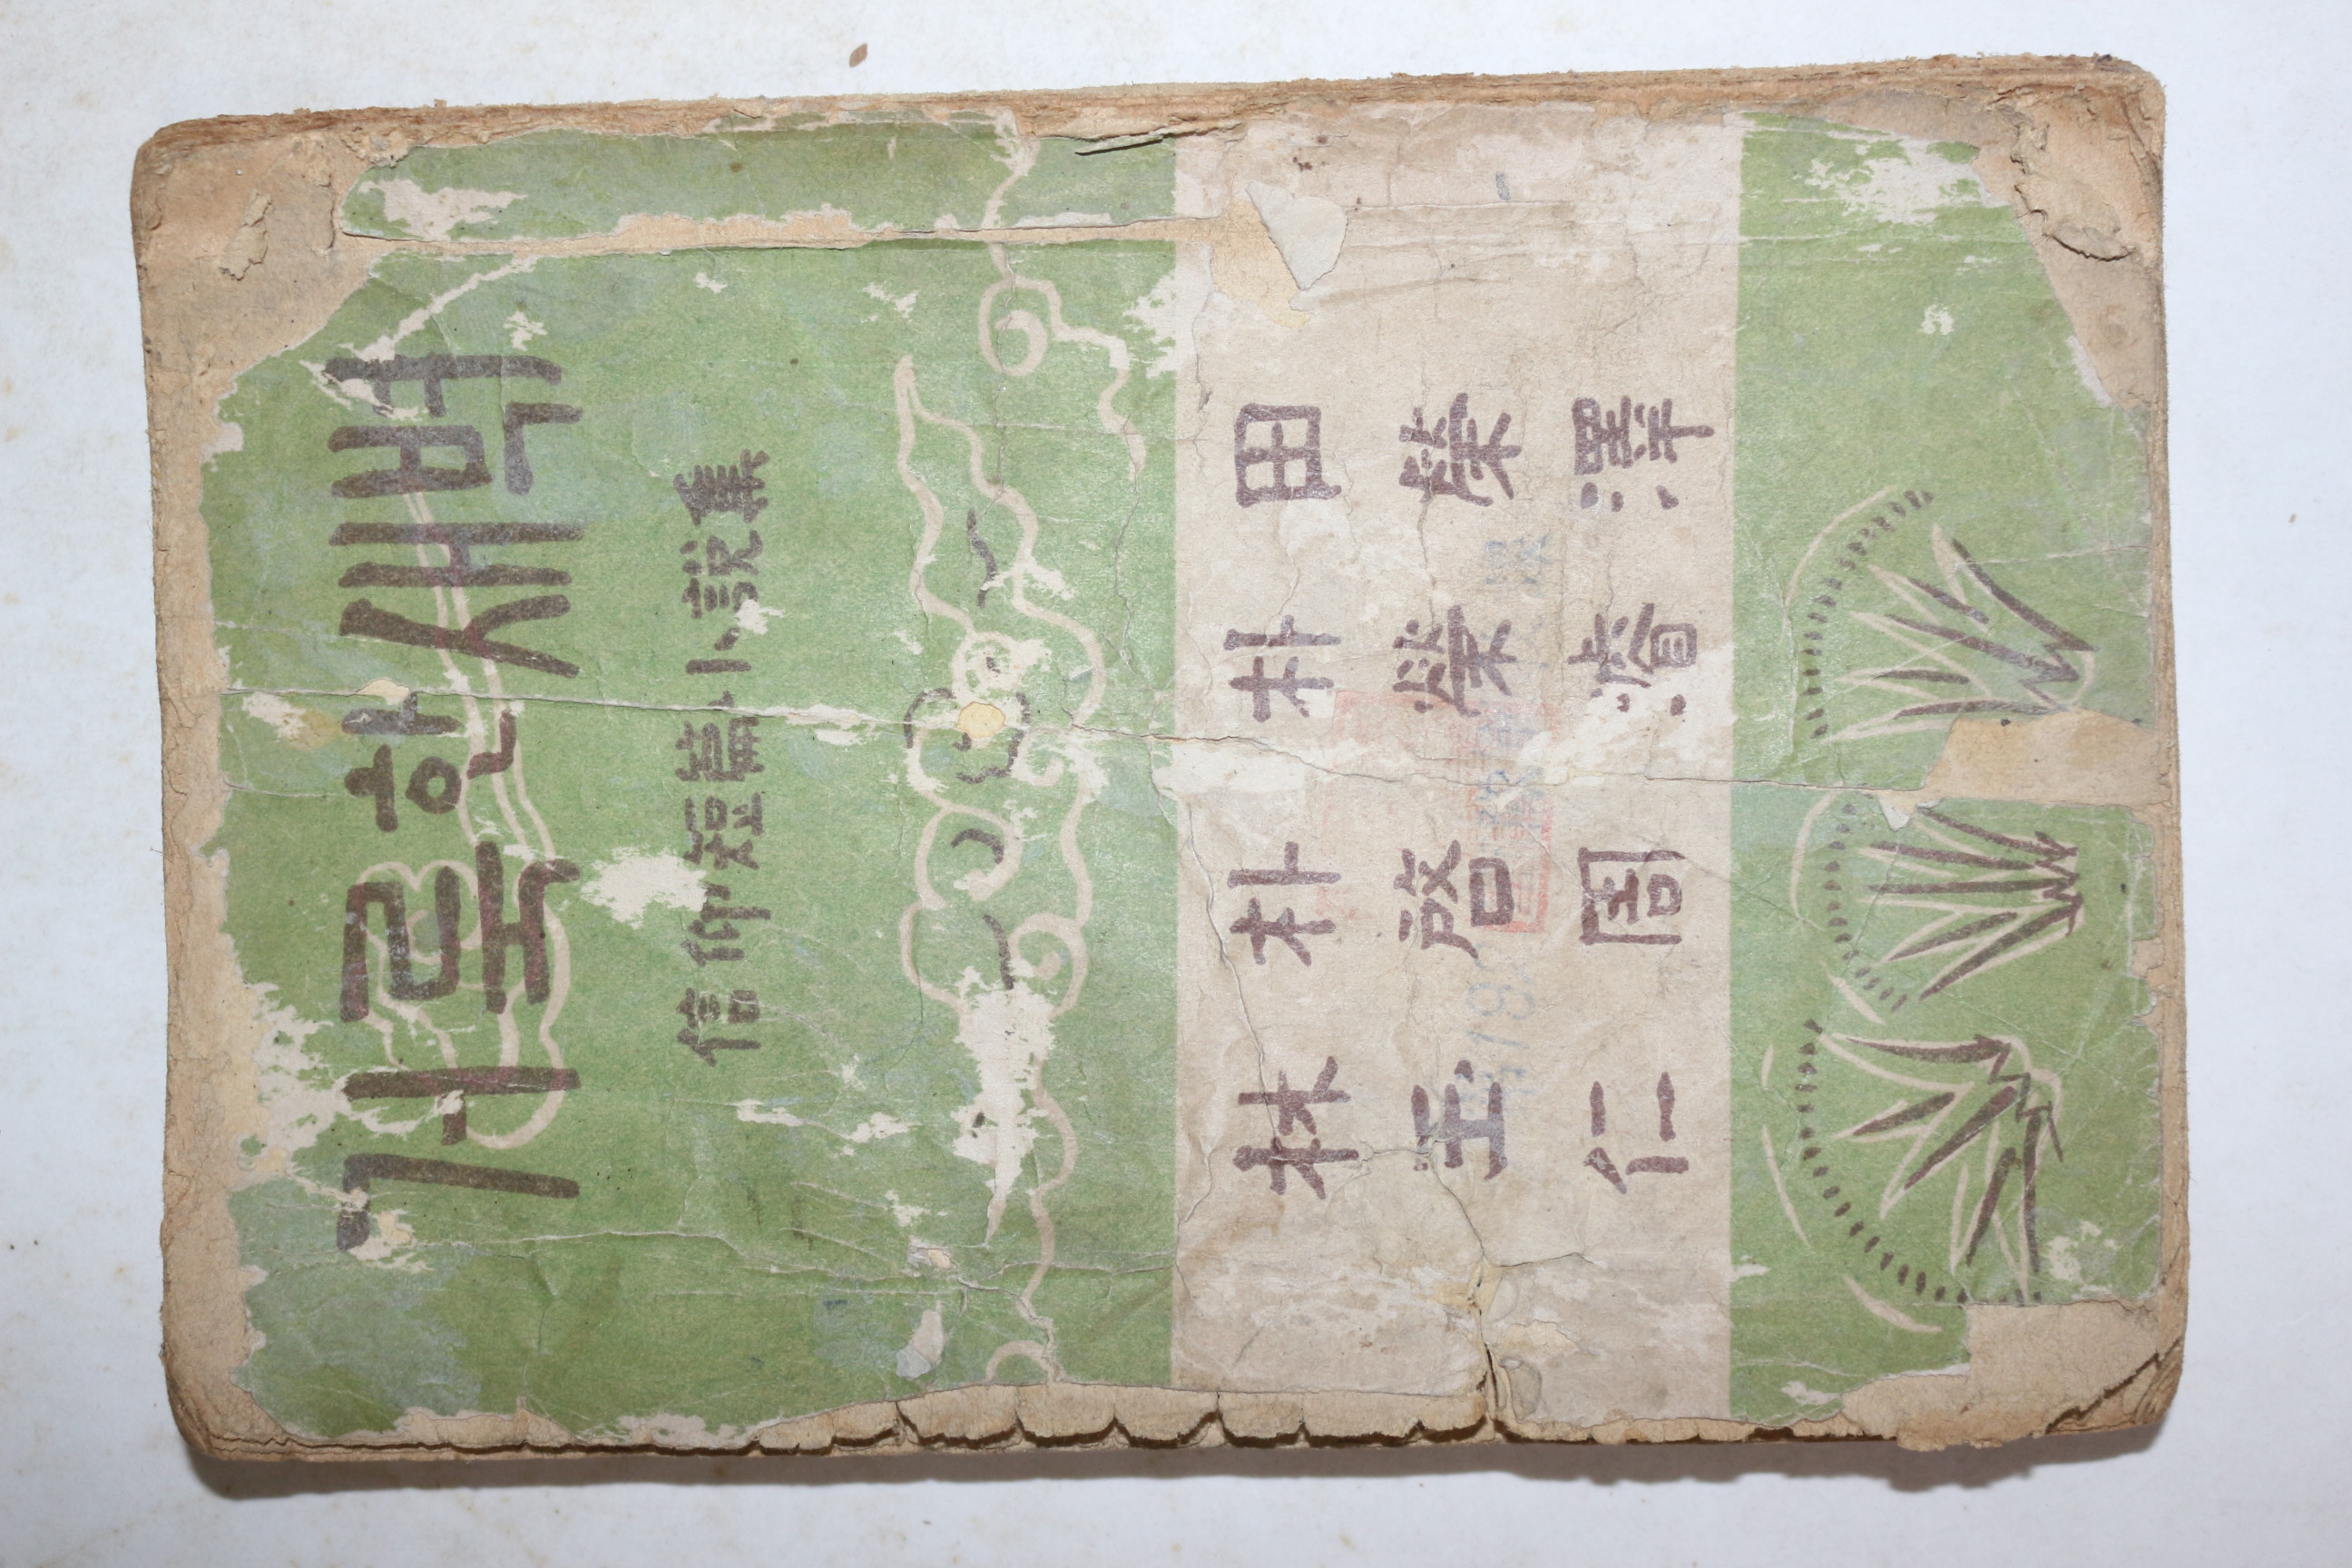 거룩한새벽
信仰短篇小說集
田榮澤
朴榮濬
朴啓周
林玉仁